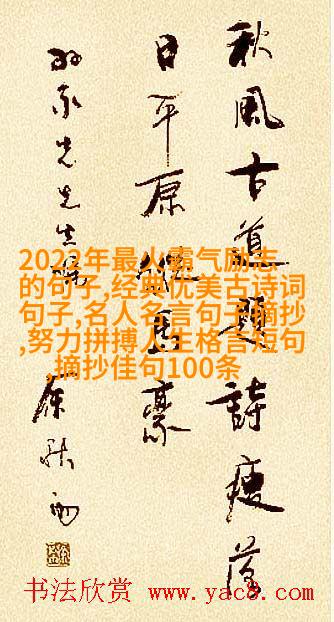 秋風古道題詩瘦落
日平原縱馬豪
先生
2023年最火霸气励志
的句子,经典优美古诗词
句子,名人名言句子摘抄
,努力拼搏人生格言短句
,摘抄佳句100条
书法欣赏 www.yac8.com